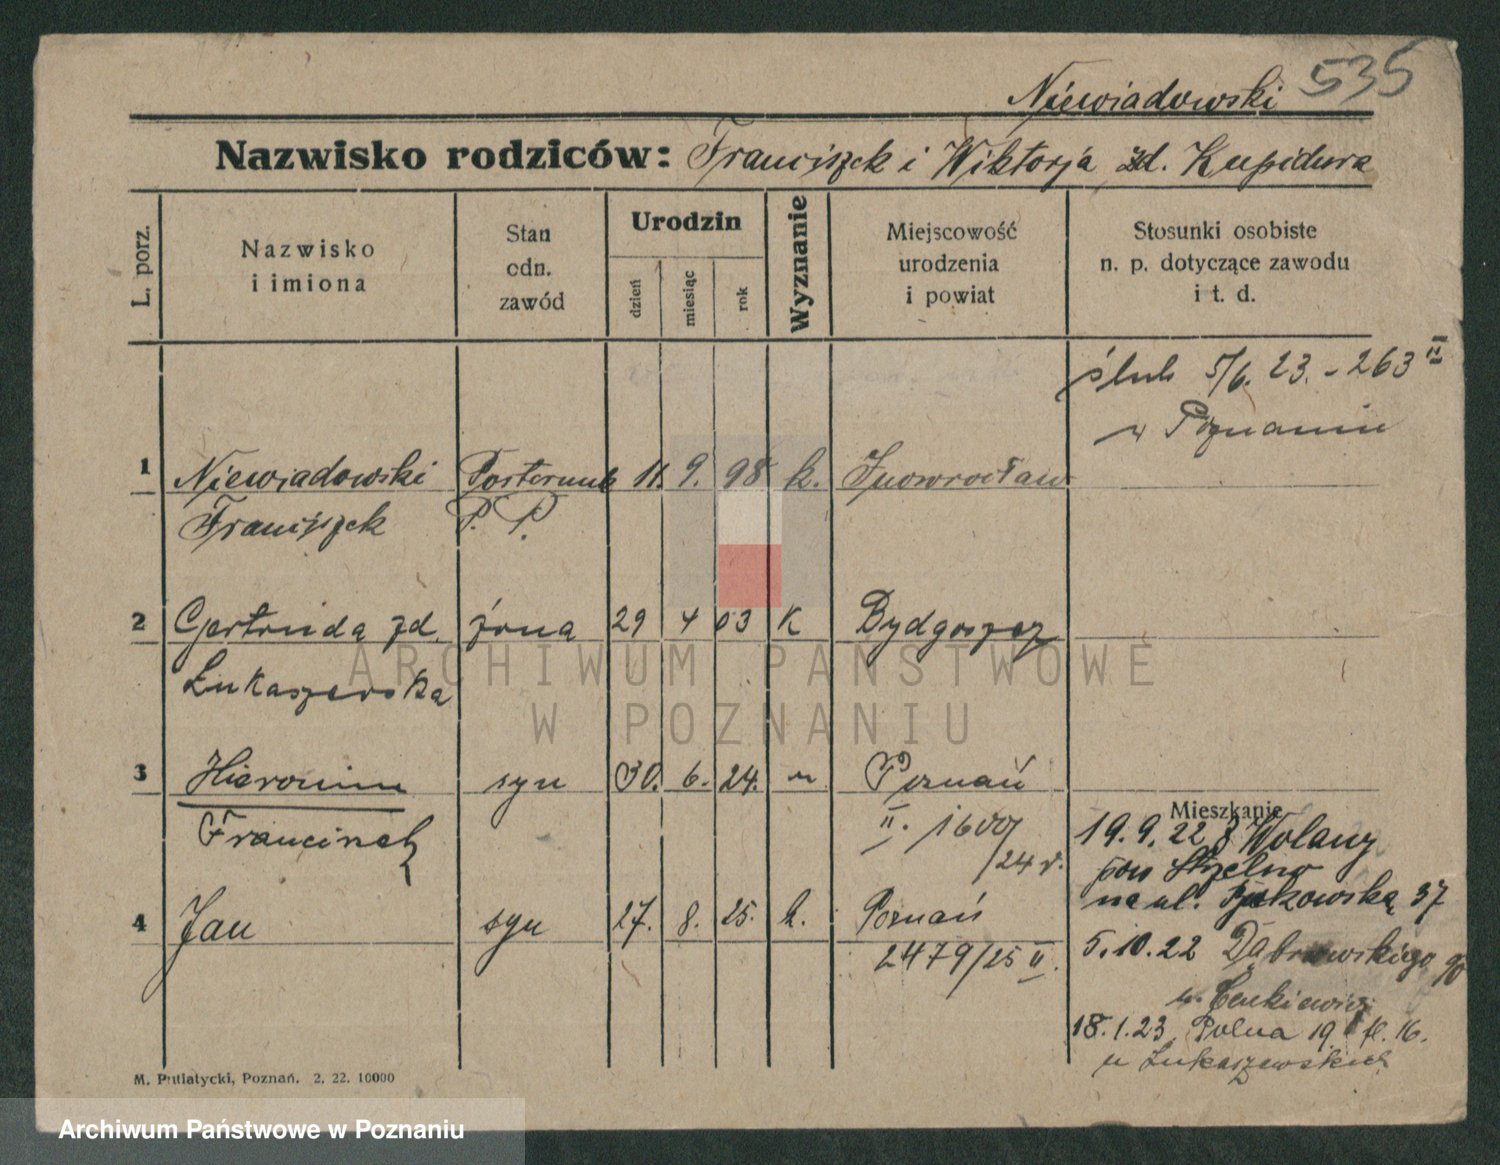 535
Niewiadowski
Nazwisko rodziców: Franciszek i Wiktorja zd. Kupidura
L. porz.
Nazwisko
i imiona
Stan
odn.
zawód
Urodzin
dzień
miesiąc
rok
Wyznanie
Miejscowość
urodzenia
i powiat
Stosunki osobiste
n. p. dotyczące zawodu
i t. d.
ślub 5/6. 23. - 263 II
w Poznaniu
1 Niewiadowski Posterunk 11. 9. 98 k. Inowrocław
Franciszek P. P.
2 Gertruda zd. żona 29 4 03 K Bydgoszcz
Łukaszewska
3 Hieronim syn 30. 6. 24. " Poznań
Franciszek II. 1600/
/24 r.
4 Jan syn 27. 8. 25. k. Poznań
2479/25 II.
Mieszkanie
19. 9. 22 z Wolany
pow Strzelno
na ul. 37
5. 10. 22 Dąbrowskiego 90
u.
18. 1. 23 Polna 19 16.
u Łukaszewskich
M. Putiatycki, Poznań. 2. 22. 10000
ARCHIWUM PAŃSTWOWE
W POZNANIU
Archiwum Państwowe w Poznaniu